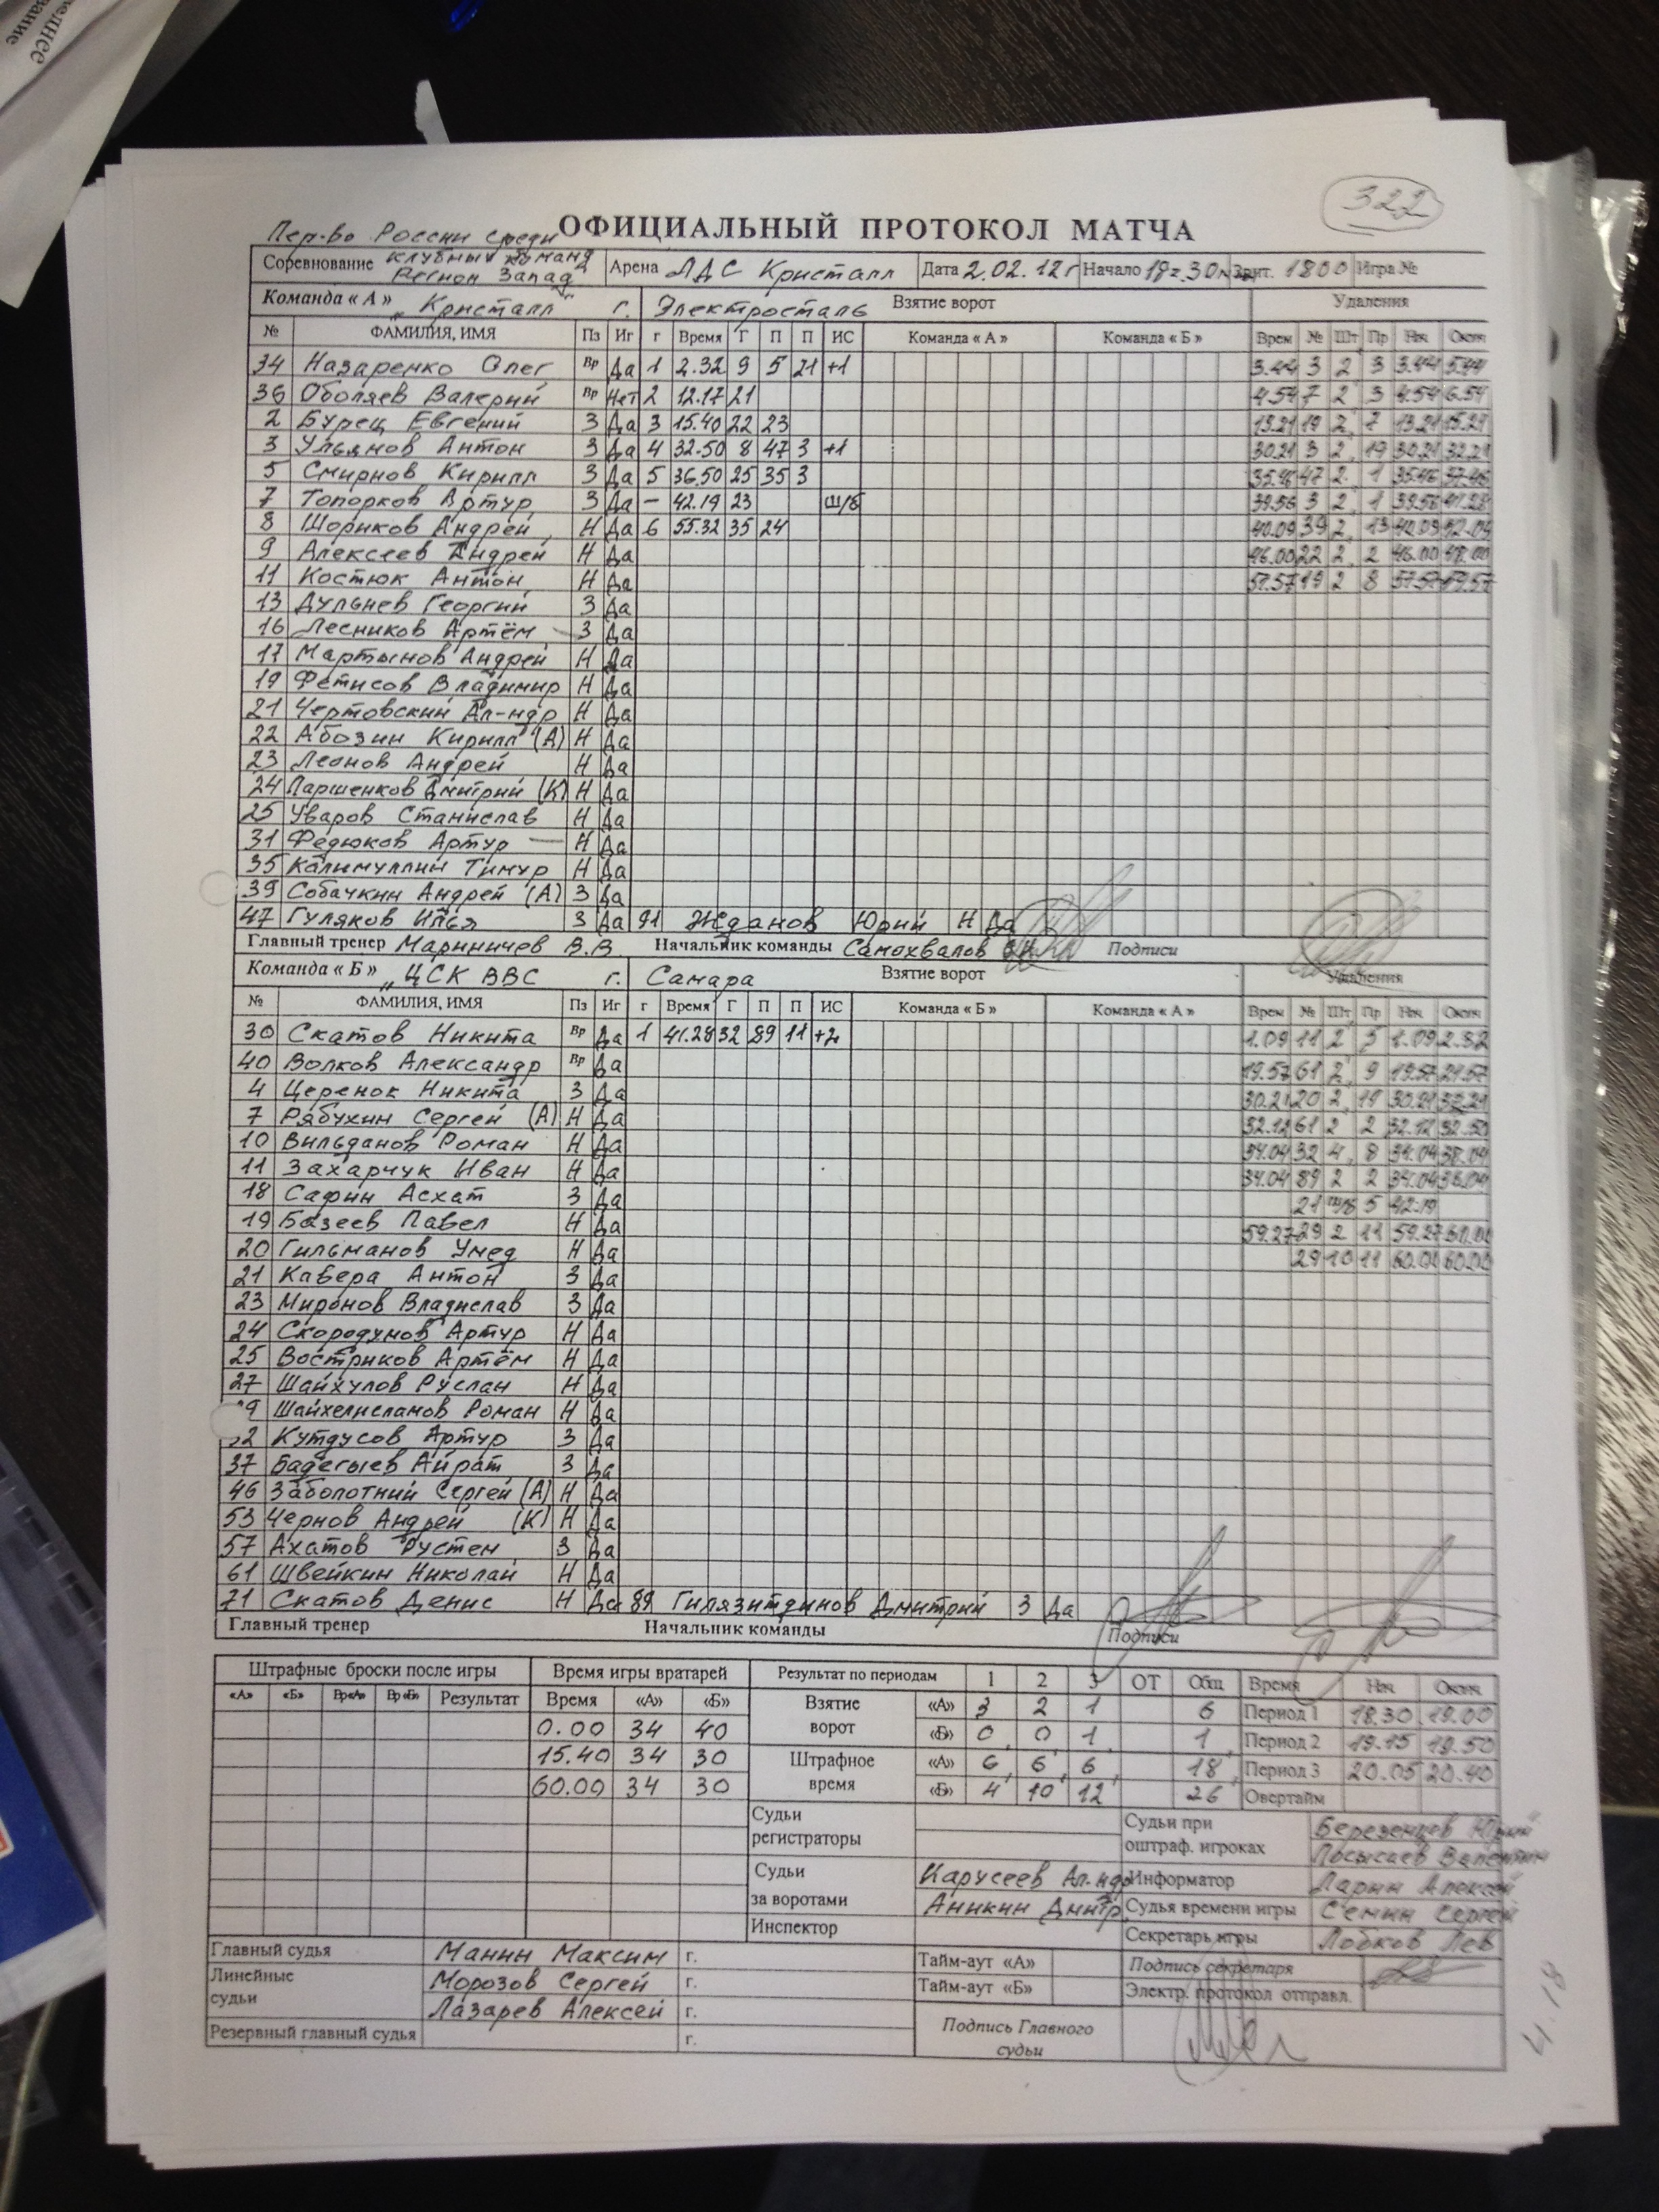 еднее
вание
322
ОФИЦИАЛЬНЫЙ ПРОТОКОЛ МАТЧА
Пер-во России среди
Соревнование клубных команд Регион Запад Арена ЛДС Кристалл Дата 2.02.12г Начало 18ч.30м Зрит. 1800 Игра №
Команда « А » „Кристалл" г. Электросталь Взятие ворот Удаления
№ ФАМИЛИЯ, ИМЯ Пз Иг г Время Г П П ИС Команда « А » Команда « Б » Врем № Шт Пр Нач Оконч
34 Назаренко Олег Вр Да 1 2.32 9 5 21 +1 3.44 3 2 3 3.44 5.44
36 Оболяев Валерий Вр Нет 2 12.17 21 4.54 7 2 3 4.54 6.54
2 Бурец Евгений З Да 3 15.40 22 23 13.21 19 2 7 13.21 15.21
3 Ульянов Антон З Да 4 32.50 8 47 3 +1 30.21 3 2 19 30.21 32.21
5 Смирнов Кирилл З Да 5 36.50 25 35 3 35.46 47 2 1 35.46 37.46
7 Топорков Артур З Да – 42.19 23 ш/б 39.56 3 2 1 39.56 41.28
8 Шориков Андрей Н Да 6 55.32 35 24 40.09 39 2 13 40.09 42.09
9 Алексеев Андрей Н Да 46.00 22 2 2 46.00 48.00
11 Костюк Антон Н Да 57.57 19 2 8 57.57 59.57
13 Дульнев Георгий З Да
16 Лесников Артём З Да
17 Мартынов Андрей Н Да
19 Фетисов Владимир Н Да
21 Чертовский Ал-ндр Н Да
22 Абозин Кирилл (А) Н Да
23 Леонов Андрей Н Да
24 Паршенков Дмитрий (К) Н Да
25 Уваров Станислав Н Да
31 Федюков Артур Н Да
35 Калимуллин Тимур Н Да
39 Собачкин Андрей (А) З Да
47 Гуляков Илья З Да 91 Жданов Юрий Н Да
Главный тренер Мариничев В.В. Начальник команды Самохвалов Подписи
Команда « Б » „ЦСК ВВС г. Самара Взятие ворот Удаления
№ ФАМИЛИЯ, ИМЯ Пз Иг г Время Г П П ИС Команда « Б » Команда « А » Врем № Шт Пр Нач Оконч
30 Скатов Никита Вр Да 1 41.28 32 89 11 +2 1.09 11 2 5 1.09 2.32
40 Волков Александр Вр Да 19.57 61 2 9 19.57 21.57
4 Церенок Никита З Да 30.21 20 2 19 30.21 32.21
7 Рябухин Сергей (А) Н Да 32.12 61 2 2 32.12 32.50
10 Вильданов Роман Н Да 34.04 32 4 8 34.04 38.04
11 Захарчук Иван Н Да 34.04 89 2 2 34.04 36.04
18 Сафин Асхат З Да 21 ш/б 5 42.19
19 Базеев Павел Н Да 59.27 29 2 11 59.27 60.00
20 Гильманов Умед Н Да 29 10 11 60.00 60.00
21 Кавера Антон З Да
23 Миронов Владислав З Да
24 Скородумов Артур Н Да
25 Востриков Артём Н Да
27 Шайхулов Руслан Н Да
9 Шайхелисламов Роман Н Да
32 Кутдусов Артур З Да
37 Бадегыев Айрат З Да
46 Заболотний Сергей (А) Н Да
53 Чернов Андрей (К) Н Да
57 Ахатов Рустем З Да
61 Швейкин Николай Н Да
71 Скатов Денис Н Да 89 Гилязитдинов Дмитрий З Да
Главный тренер Начальник команды Подписи
Штрафные броски после игры Время игры вратарей Результат по периодам 1 2 3 ОТ Общ Время Нач. Оконч.
«А» «Б» Вр«А» Вр«Б» Результат Время «А» «Б» Взятие ворот «А» 3 2 1 6 Период 1 18.30 19.00
0.00 34 40 «Б» 0 0 1 1 Период 2 19.15 19.50
15.40 34 30 Штрафное время «А» 6 6 6 18 Период 3 20.05 20.40
60.00 34 30 «Б» 4 10 12 26 Овертайм
Судьи регистраторы Судьи при оштраф. игроках Березенцев Юрий
Лосысаев Валентин
Судьи за воротами Карусеев Ал-ндр Информатор Ларин Алексей
Аникин Дмитр. Судья времени игры Семин Сергей
Инспектор Секретарь игры Лобков Лев
Главный судья Манин Максим г. Тайм-аут «А» Подпись секретаря
Линейные судьи Морозов Сергей г. Тайм-аут «Б» Электр. протокол отправл.
Лазарев Алексей г.
Резервный главный судья г. Подпись Главного судьи
4.18